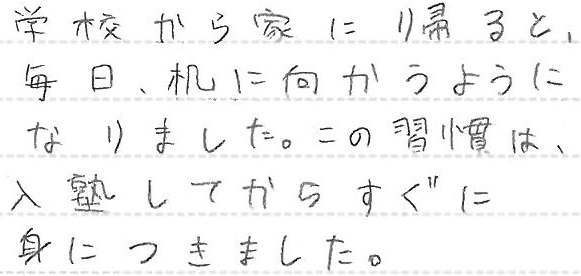 学校から家に帰ると、
毎日、机に向かうように
なりました。この習慣は、
入塾してからすぐに
身につきました。